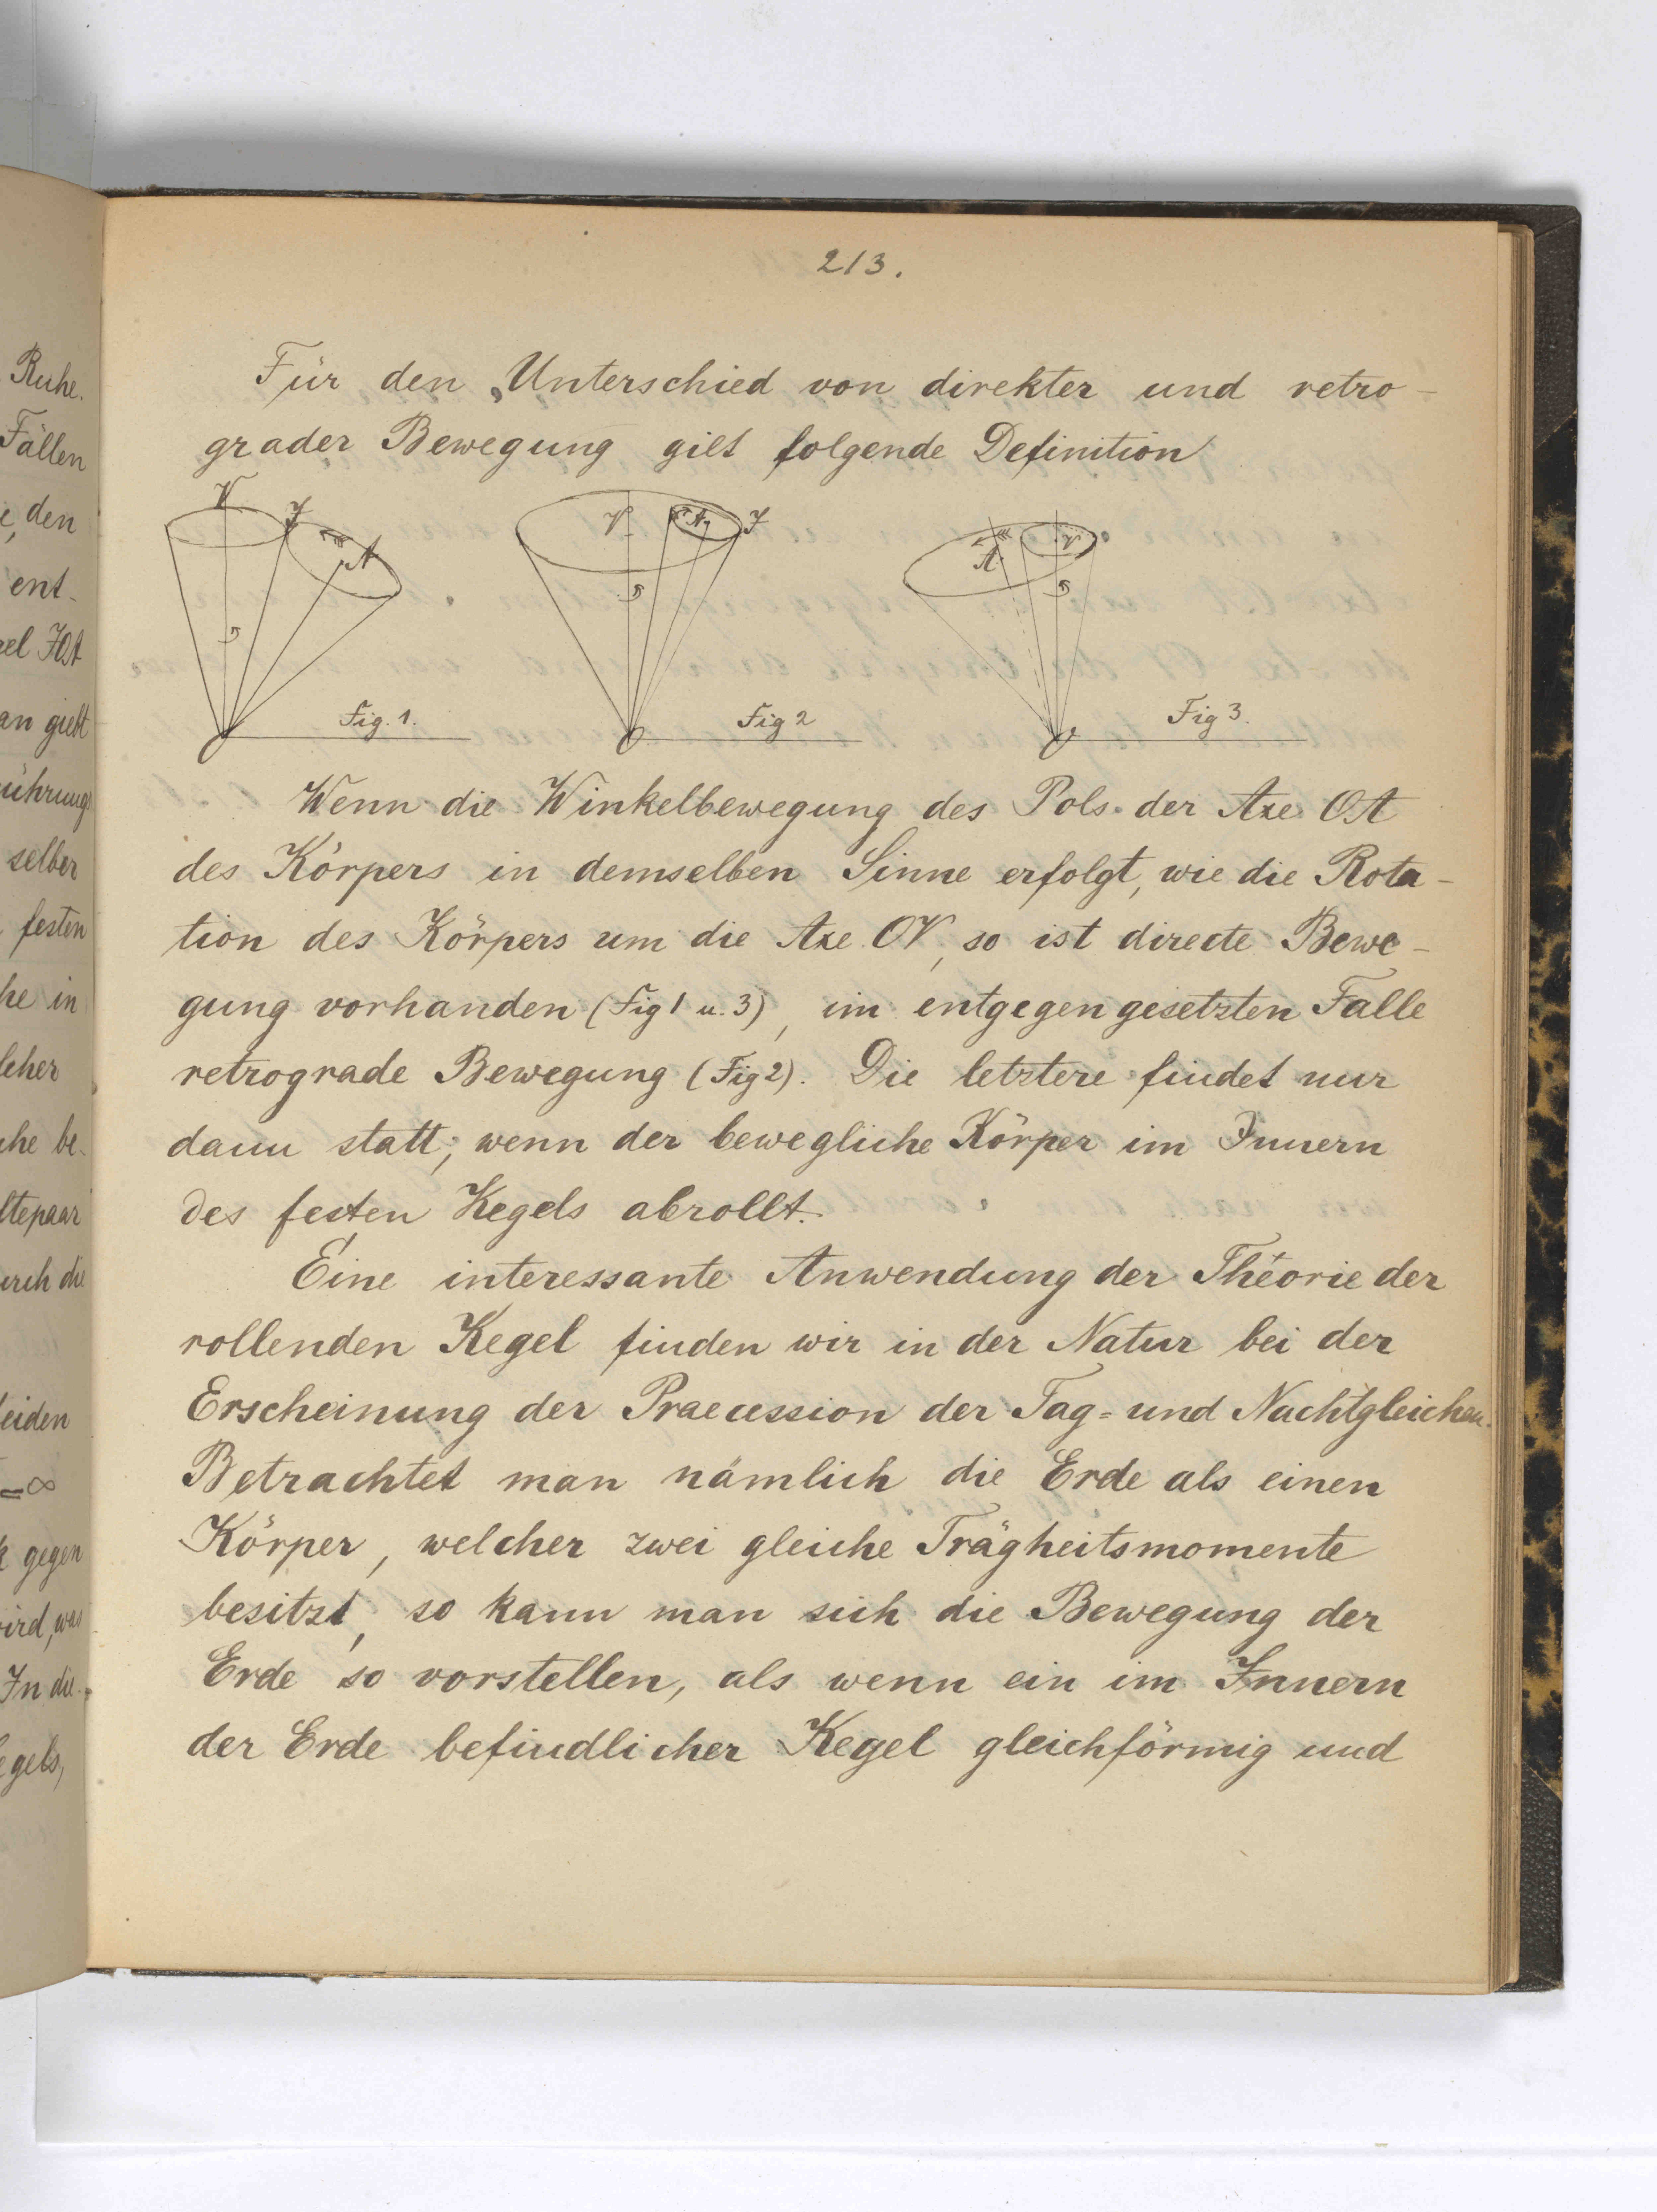 213.
Für den Unterschied von direkter und retro-
grader Bewegung gilt folgende Definition
V J A
V A J
A V
Fig. 1. Fig 2 Fig 3.
O O O
Wenn die Winkelbewegung des Pols der Axe OA
des Körpers in demselben Sinne erfolgt, wie die Rota-
tion des Körpers um die Axe OV, so ist directe Bewe-
gung vorhanden (Fig 1 u. 3), im entgegengesetzten Falle
retrograde Bewegung (Fig 2). Die letztere findet nur
dann statt, wenn der bewegliche Körper im Innern
des festen Kegels abrollt.
Eine interessante Anwendung der Theorie der
rollenden Kegel finden wir in der Natur bei der
Erscheinung der Praecession der Tag= und Nachtgleichen.
Betrachtet man nämlich die Erde als einen
Körper, welcher zwei gleiche Trägheitsmomente
besitzt, so kann man sich die Bewegung der
Erde so vorstellen, als wenn ein im Innern
der Erde befindlicher Kegel gleichförmig und
Ruhe.
Fällen
den
ent-
an giebt
selber
festen
he in
be-
eiden
=∞
gegen
ird, was
In die-